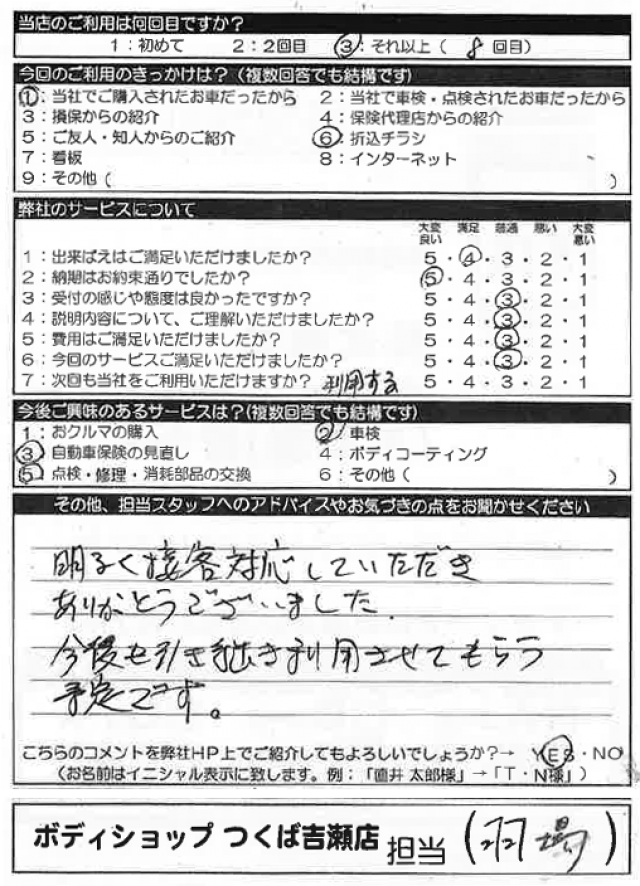 当店のご利用は何回目ですか?
1：初めて　2：2回目　③：それ以上（ 8 回目）
今回のご利用のきっかけは？（複数回答でも結構です）
①：当社でご購入されたお車だったから　2：当社で車検・点検されたお車だったから
3：損保からの紹介　4：保険代理店からの紹介
5：ご友人・知人からのご紹介　⑥：折込チラシ
7：看板　8：インターネット
9：その他（　）
弊社のサービスについて
大変良い　満足　普通　悪い　大変悪い
1：出来ばえはご満足いただけましたか？　5・④・3・2・1
2：納期はお約束通りでしたか？　⑤・4・3・2・1
3：受付の感じや態度は良かったですか？　5・4・③・2・1
4：説明内容について、ご理解いただけましたか？　5・4・③・2・1
5：費用はご満足いただけましたか？　5・4・③・2・1
6：今回のサービスご満足いただけましたか？　5・4・③・2・1
7：次回も当社をご利用いただけますか？ 利用する　5・4・3・2・1
今後ご興味のあるサービスは？（複数回答でも結構です）
1：おクルマの購入　②：車検
③：自動車保険の見直し　4：ボディコーティング
⑤：点検・修理・消耗部品の交換　6：その他（　）
その他、担当スタッフへのアドバイスやお気づきの点をお聞かせください
明るく接客対応していただき
ありがとうございました.
今後も引き継き利用させてもらう
予定です。
こちらのコメントを弊社HP上でご紹介してもよろしいでしょうか？→　YES・NO
（お名前はイニシャル表示に致します。例：「直井 太郎様」→「T・N様」）
ボディショップ つくば吉瀬店 担当（羽場）